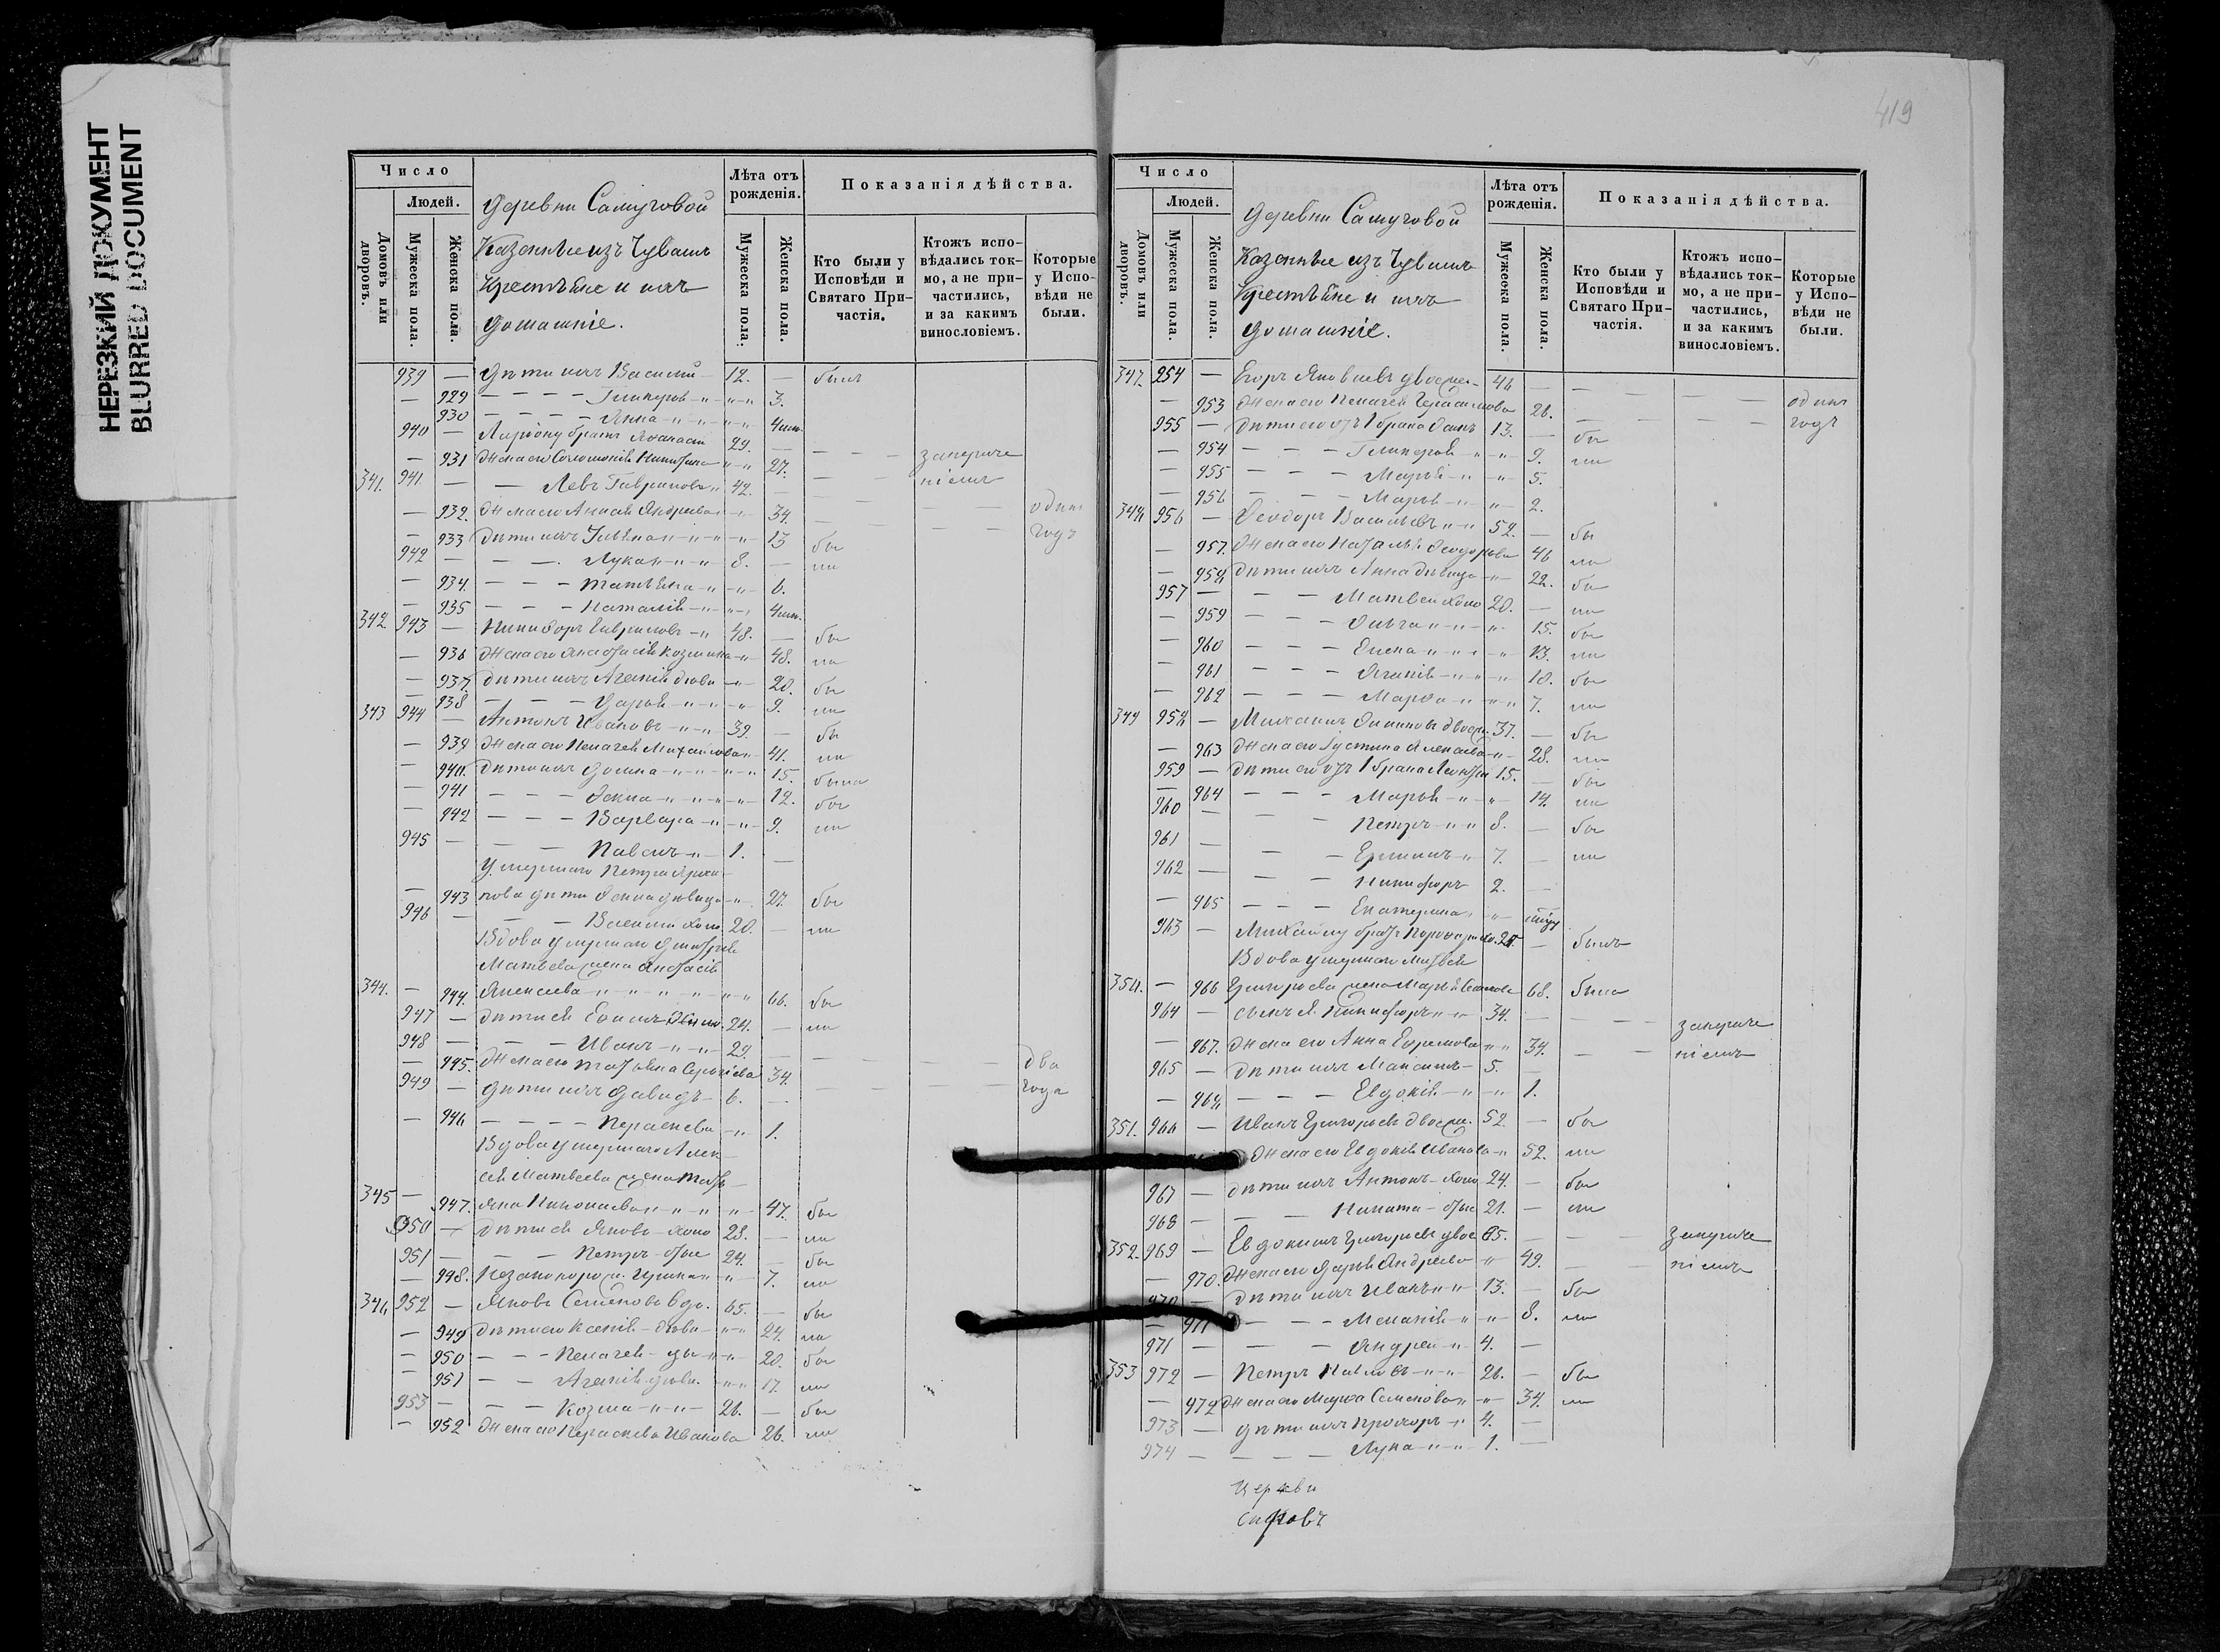 НЕРЕЗКИЙ ДОКУМЕНТ
BLURRED DOCUMENT
Число
Людей.
Домовъ или дворовъ.
Мужеска пола.
Женска пола.
деревни Самуговой
Казенные изъ Чувашъ
Крестьяне и ихъ
домашніе.
Лѣта отъ рожденія.
Мужеска пола.
Женска пола.
Показанія дѣйства.
Кто были у Исповѣди и Святаго Причастія.
Ктожъ исповѣдались токмо, а не причастились, и за какимъ винословіемъ.
Которые у Исповѣди не были.
939 — дѣти ихъ Василій 12. — былъ
— 929 — — — Гликерія „ „ 3.
930 — — — Анна „ „
940 — Ларіону братъ Аѳанасій 29. —
— 931 жена его Соломонія Никитина „ 27. — — занерачѣ
341. 941. — — Левъ Гавриловъ „ 42. — — — ніемъ
— 932. жена его Анисія Андреева „ 34. — — — одинъ
— 933 дѣти ихъ Ульяна „ „ 13 бы годъ
942 — — Лука „ „ 8. — ли
— 934. — — — Татьяна „ „ 6.
— 935 — — — Наталія „ „
342. 943 — Никифоръ Гавриловъ „ 48. — бы
— 936 жена его Анастасія Козмина „ 48. ли
— 937. дѣти ихъ Агафія дѣви „ 20. бы
— 938 — — — Дарья „ „ 9. ли
343 944 — Антонъ Ивановъ „ „ 39. — бы
— 939 жена его Пелагея Михайлова „ 41. ли
— 940. дѣти ихъ Домна „ „ „ 15. была
— 941 — — — Ѳекла „ „ „ 12. бы
— 942 — — — Варвара „ „ 9. ли
945 — — — Павелъ „ 1. —
Умершаго Петра
— 943 пова дѣти Ѳекла дѣвица „ 27. бы
946 — — — Василій холо 20. — ли
Вдова умершаго Дмитрія
Матвѣева жена Анастасія
344. — 944. Алексѣева „ „ „ „ 66. бы
947 — дѣти ея 24. — ли
948 — — — Иванъ „ „ 29. —
— 945. жена его Татьяна Сергѣева 34. — — — два
949 — дѣти ихъ Давидъ 6. — — — года
— 946 — — — Параскева „ 1.
Вдова умершаго Алек-
сѣя Матвѣева жена Татья-
345 — 947. яна Николаева „ „ „ 47. бы
950 — дѣти ея Яковъ холо 28. — ли
951 — — — Петръ 24. — бы
— 948. Незаконорож. Ирина „ „ 7. ли
346 952 — Яковъ Семеновъ вдо. 65. — бы
— 949 дѣти его Ксенія дѣви „ 24. ли
— 950 — — Пелагея „ „ 20. бы
— 951 — — Агафія дѣви. „ 17. ли
953 — — — Козма „ „ 21. — бы
— 952 жена его Параскева Иванова 26. ли
419
Число
Людей.
Домовъ или дворовъ.
Мужеска пола.
Женска пола.
деревни Самуговой
Казенные изъ Чувашъ
Крестьяне и ихъ
домашніе.
Лѣта отъ рожденія.
Мужеска пола.
Женска пола.
Показанія дѣйства.
Кто были у Исповѣди и Святаго Причастія.
Ктожъ исповѣдались токмо, а не причастились, и за какимъ винословіемъ.
Которые у Исповѣди не были.
347. 954 — Егоръ Яковлевъ двоеже. 46 — — — —
— 953 жена его Пелагея Герасимова 26. — — — одинъ
955 — дѣти его отъ 1 брака 13. — бы годъ
— 954 — — — Гликерія „ „ 9. ли
— 955 — — — Марья „ „ 5.
— 956 — — — Марья „ „ 2.
348 956 — Ѳеодоръ Васильевъ „ „ 52. — бы
— 957. жена его Наталья Ѳеодорова 46 ли
— 958 дѣти ихъ Анна дѣвица „ 22. бы
957 — — — Матвей холо 20. — ли
— 959 — — — Ольга „ „ „ 15. бы
— 960 — — — Елена „ „ „ 13. ли
— 961 — — — „ „ 10. бы
— 962 — — — Марѳа „ „ 7. ли
349 958 — Михаилъ двоеж. 37. — бы
— 963 жена его Устинья Алексѣева „ 28. ли
959 — дѣти его отъ 1 брака 15. — бы
— 964 — — — Марья „ „ 14. ли
960 — — Петръ „ „ 8. — бы
961 — — — „ 7. — ли
962 — — — Никифоръ 2. —
— 965 — — — Екатерина „ „
963 — Михаилу братъ — былъ
Вдова умершаго Матвѣя
350. — 966 Григорьева жена Марья 68. была
964 — сынъ ея Никифоръ „ „ 34. — — — занерачѣ
— 967. жена его Анна Ефремова „ „ 34. — — ніемъ
965 — дѣти ихъ Максимъ 5. —
— 968 — — — Евдокія „ „ 1.
351. 966 — Иванъ Григорьевъ двоеж. 52. — бы
жена его Евдокія Иванова „ 52. ли
967 — дѣти ихъ Антонъ холо 24. — бы
968 — — — Никита 21. — ли
352. 969 — Евдокимъ Григорьевъ двое 65. — — — занерачѣ
— 970. жена его Дарья Андреева „ 49. — — ніемъ
970 — дѣти ихъ Иванъ „ „ 13. — бы
— 971 — — — Меланія „ „ 8. ли
971 — — — Андрей „ 4. —
353 972 — Петръ Павловъ „ „ 26. — бы
— 972 жена его Марѳа Семенова „ „ 34. ли
973 — дѣти ихъ Прохоръ „ 4. —
974 — — — — Лука „ „ 1. —
Церкви